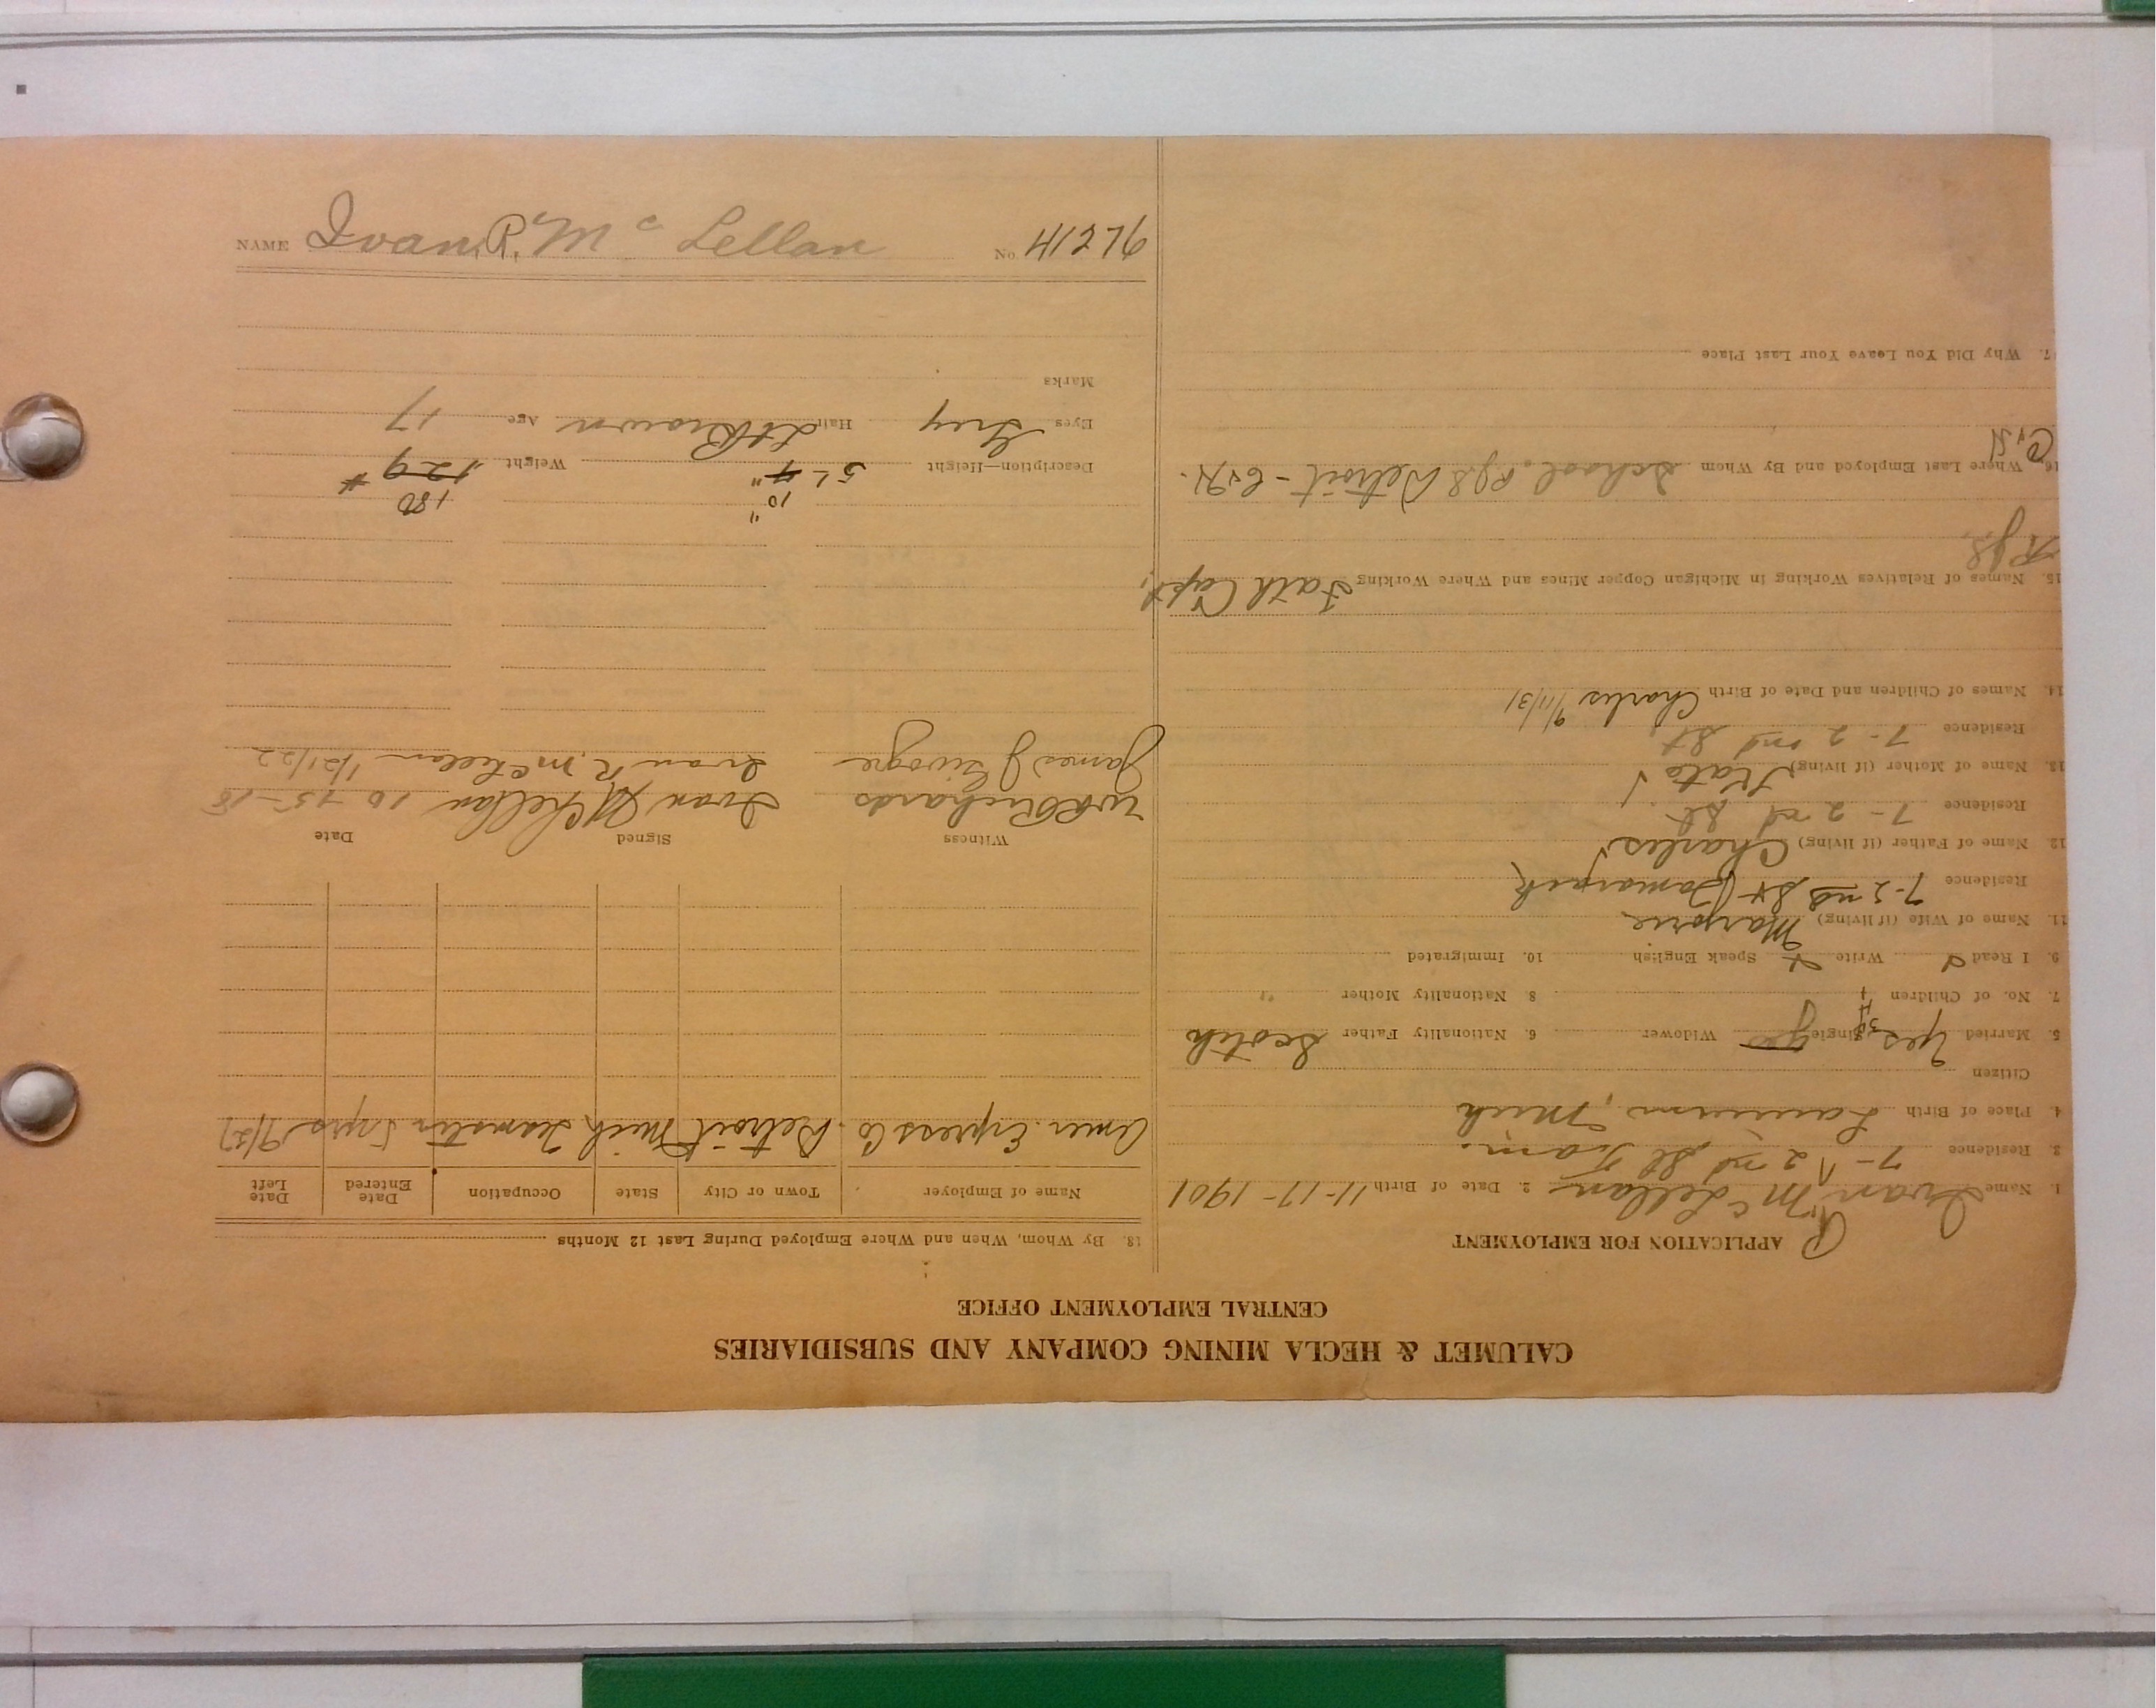 CALUMET & HECLA MINING COMPANY AND SUBSIDIARIES
CENTRAL EMPLOYMENT OFFICE
APPLICATION FOR EMPLOYMENT
1. Name Ivan R. McLellan 2. Date of Birth 11-17-1901
3. Residence 7- 2nd St Tam.
4. Place of Birth Laurium, Mich
Citizen
5. Married Yes Single yes Widower 6. Nationality Father Scotch
7. No. of Children 1 8. Nationality Mother "
9. I Read Write Speak English 10. Immigrated
11. Name of Wife (if living) Marjorie
Residence 7-2nd St Tamarack
12. Name of Father (if living) Charles
Residence 7- 2nd St
13. Name of Mother (if living) Kate
Residence 7- 2nd St
14. Names of Children and Date of Birth Charles 9/11/31
15. Names of Relatives Working in Michigan Copper Mines and Where Working Fath Capt,
16. Where Last Employed and By Whom School. Detroit - C&H.
C&H
17. Why Did You Leave Your Last Place
18. By Whom, When and Where Employed During Last 12 Months
Name of Employer Town or City State Occupation Date Entered Date Left
Amer. Express Co. Detroit Mich Teamster 5 yrs 9/27
Witness Signed Date
W R Richards Ivan McLellan 10-15-18
James J Ivan R. McLellan 1/21/22
10" 180
Description—Height 5-4" Weight 129 #
Eyes Grey Hair Lt Brown Age 17
Marks
NAME Ivan R. Mc Lellan No. 41276